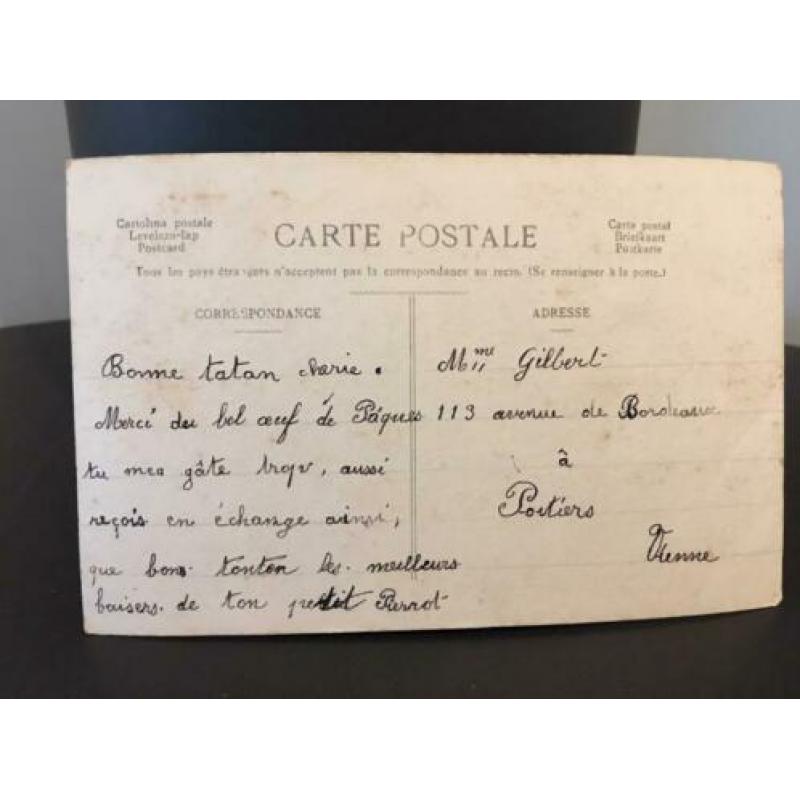 Cartolina postale
Levelezo-lap
Postcard
CARTE POSTALE
Carte postal
Briefkaart
Postkarte
Tous les pays étrangers n'acceptent pas la correspondance au recto. (Se renseigner à la poste.)
CORRESPONDANCE
Bonne tatan cherie.
Merci du bel œuf de Pâques
tu mea gâte trop, aussi
reçois en échange ainsi,
que bon tonton les meilleurs
baisers de ton petit Pierrot
ADRESSE
Mme Gilbert
113 avenue de Bordeaux
à
Poitiers
Vienne